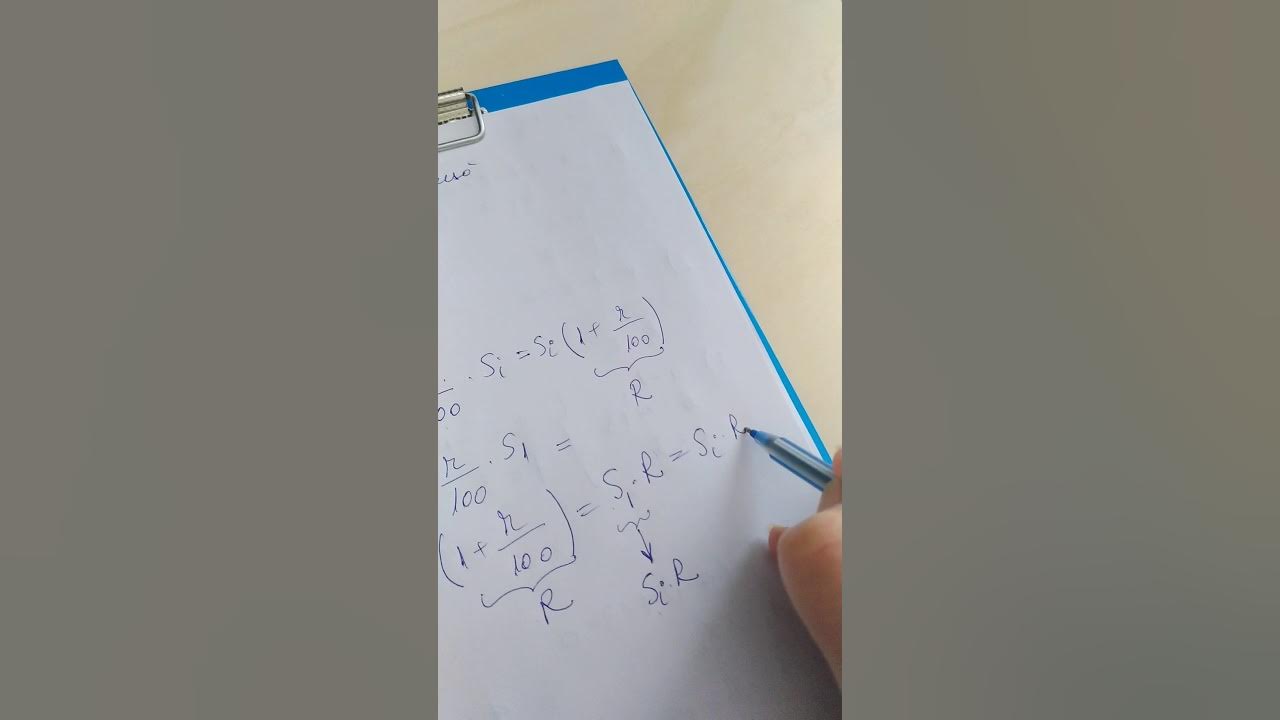 · Sᵢ = Sᵢ (1 + r/100)
00
R
r/100 · S₁ =
(1 + r/100) = S₁ · R = Sᵢ · R
R
Sᵢ · R